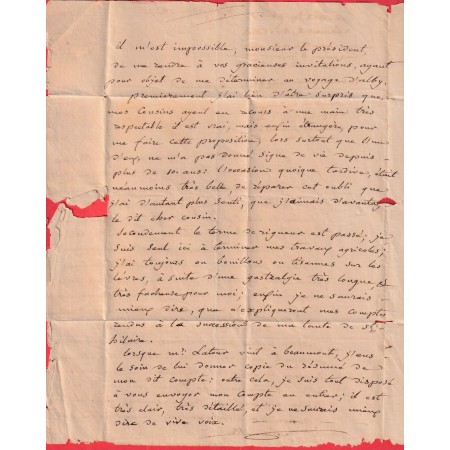 il m'est impossible, monsieur le président
de me rendre à vos gracieuses invitations, ayant
pour objet de me déterminer au voyage d'alby.
premièrement j'ai lieu d'être surpris que
mes cousins ayent eu recours à une main très
respectable il est vrai, mais enfin étrangère, pour
me faire cette proposition, lors surtout que l'un
d'eux, ne m'a pas donné signe de vie depuis
plus de 20 ans: l'occasion quoique tardive, était
néanmoins très belle de réparer cet oubli que
j'ai d'autant plus senti, que j'aimais d'avantage
le dit cher cousin.
Secondement le terme de rigueur est passé; je
suis seul ici à terminer mes travaux agricoles;
j'ai toujours ou bouillons ou tisannes sur les
lèvres, à suite d'une gastralgie très longue, et
très facheuse pour moi; enfin je ne saurais
mieux dire, que n'expliqueront mes comptes
rendus à la succession de ma tante de St
hilaire.
lorsque mr. Latour vint à beaumont, j'eus
le soin de lui donner copie du résumé de
mon dit compte: outre cela, je suis tout disposé
à vous envoyer mon compte en entier; il est
très clair, très détaillé, et je ne saurais mieux
dire de vive voix.